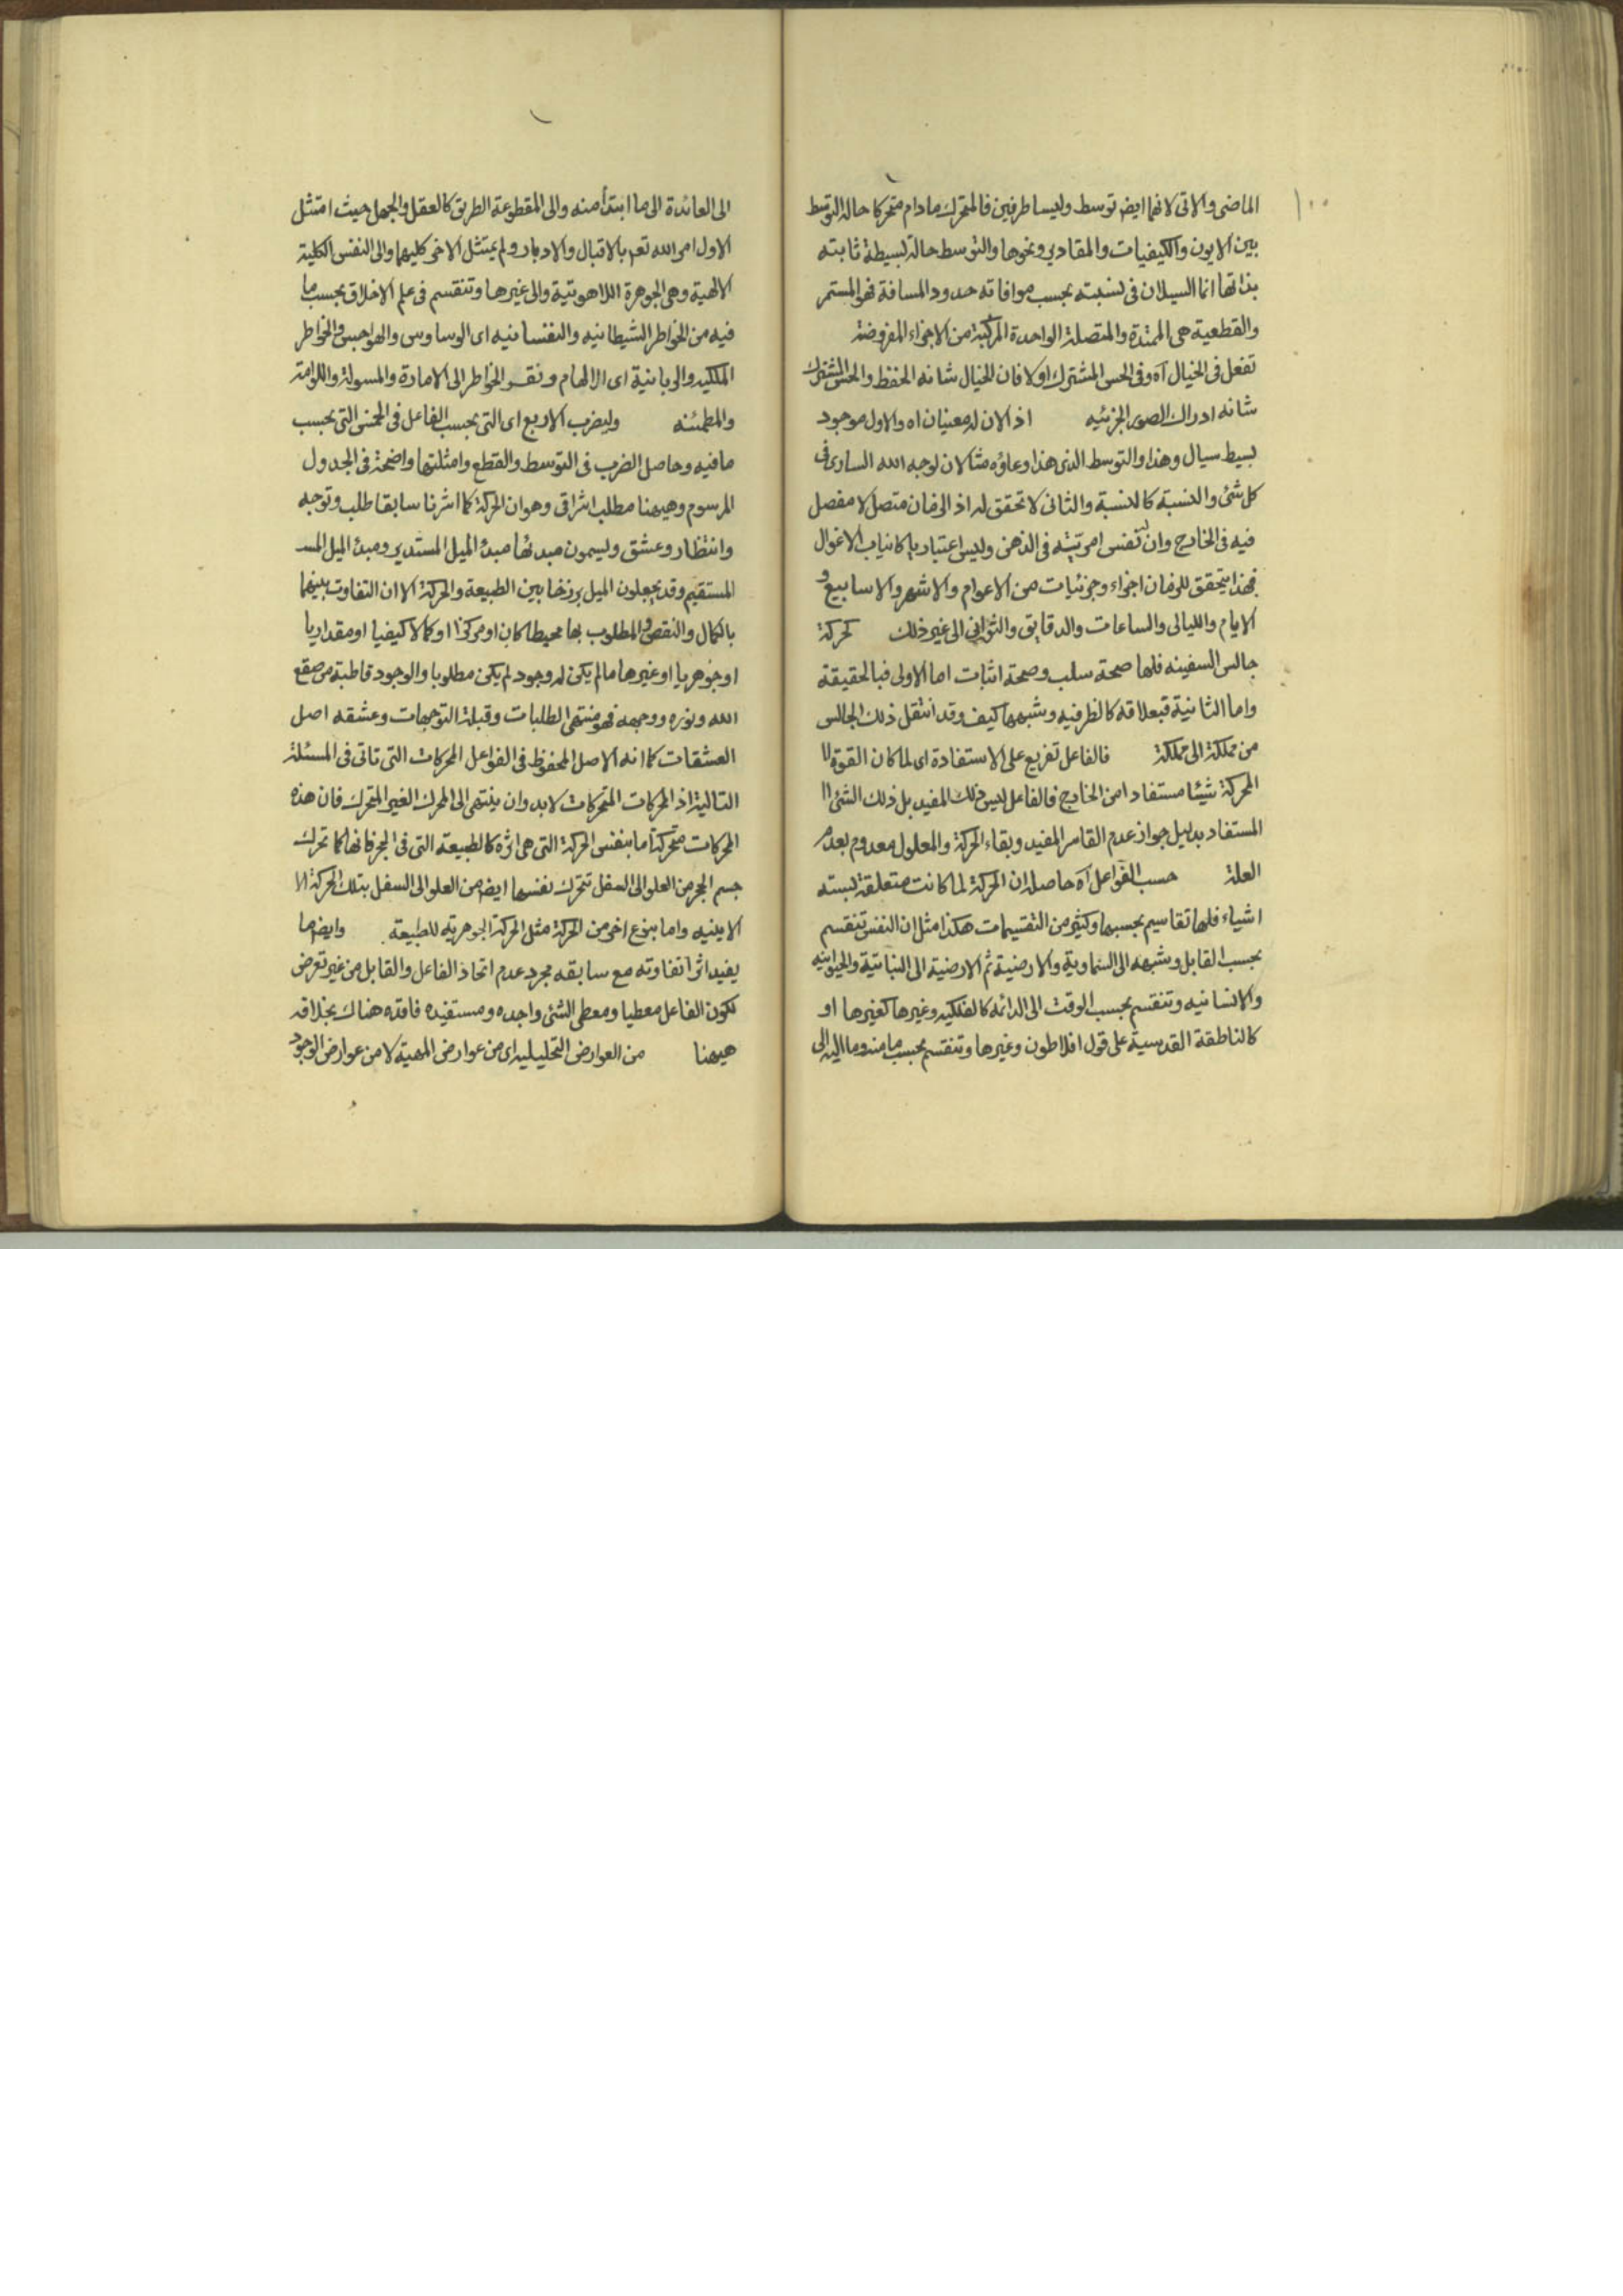 ١٠٠
الماضى والاتى لانهما ايضا توسط وليسا طرفين فالمتحرك مادام متحركا حاله التوسط
بين الايون والكيفيات والمقادير ونحوها والتوسط حالة بسيطة ثابته
بذاتها انما السيلان فى نسبته بحسب موافاته حدود المسافة فهو المستمر
والقطعية هى الممتدة والمتصلة الواحدة المركبة من الاجزاء المفروضة
تفعل فى الخيال آه وفى الحس المشترك اولا فان الخيال شانه الحفظ والحس المشترك
شانه ادراك الصور الجزئيه اذ الان له معنيان اه والاول موجود
بسيط سيال وهذا والتوسط الذى هذا وعاؤه مثالان لوجه الله السارى فى
كل شئ والنسبة كالنسبة والثانى لا تحقق له اذ الزمان متصل لا مفصل
فيه فى الخارج وان لنفس امريته فى الذهن وليس اعتباريا كانياب الاغوال
فهذا يتحقق للزمان اجزاء وجزئيات من الاعوام والاشهر والاسابيع و
الايام والليالى والساعات والدقايق والثوانى الى غير ذلك كحركة
جالس السفينه فلها صحة سلب وصحة اثبات اما الاولى فبالحقيقة
واما الثانية فبعلاقه كالظرفيه وشبهها كيف وقد انتقل ذلك الجالس
من مملكة الى مملكة فالفاعل تفريع على الاستفادة اى لما كان القوة
المحركة شيئا مستفادا من الخارج فالفاعل ليس ذلك المفيد بل ذلك الشئ
المستفاد بدليل جواز عدم القاسر المفيد وبقاء الحركة والمعلول معدوم بعدم
العلة حسب الفواعل آه حاصله ان الحركة لما كانت متعلقة بستة
اشياء فلها تقاسيم بحسبها وكثير من التقسيمات هكذا مثل ان النفس تنقسم
بحسب القابل وشبهه الى السماوية والارضية ثم الارضية الى النباتية والحيوانيه
والانسانيه وتنقسم بحسب الوقت الى الدائمه كالفلكيه وغيرها كغيرها او
كالناطقة القدسية على قول افلاطون وغيرها وتنقسم بحسب ما منه وما اليه الى
الى العائدة الى ما ابتدأ منه والى المقطوعة الطريق كالعقل والجهل حيث امتثل
الاول امر الله تعم بالاقبال والادبار ولم يمتثل الاخر كليهما والى النفس الكلية
الالهية وهى الجوهرة اللاهوتية والى غيرها وتنقسم فى علم الاخلاق بحسب ما
فيه من الخواطر الشيطانيه والنفسانيه اى الوساوس والهواجس والخواطر
الملكيه والربانية اى الالهام ونقر الخواطر الى الامارة والمسولة واللوامة
والمطمئنه وليضرب الاربع اى التى بحسب الفاعل فى الخمس التى بحسب
ما فيه وحاصل الضرب فى التوسط والقطع وامثلتها واضحة فى الجدول
المرسوم وهيهنا مطلب اشراقى وهو ان الحركة كما اشرنا سابقا طلب وتوجه
وانتظار وعشق وليسمون مبدئها مبدء الميل المستدير ومبدء الميل المسـ
المستقيم وقد يجعلون الميل برزخا بين الطبيعة والحركة الا ان التفاوت بينهما
بالكمال والنقص والمطلوب بها محيطا كان او مركزا او كمالا كيفيا او مقداريا
او جوهريا او غيرها ما لم يكن له وجود لم يكن مطلوبا والوجود قاطبة من صقع
الله ونوره ووجهه فهو منتهى الطلبات وقبلة التوجهات وعشقه اصل
العشقات كما انه الاصل المحفوظ فى الفواعل المحركات التى تاتى فى المسئلة
التالية اذ المحركات المتحركات لابد وان ينتهى الى المحرك الغير المتحرك فان هذه
المحركات متحركة اما بنفس الحركة التى هى اثره كالطبيعة التى فى الحجر فانها كما تحرك
جسم الحجر من العلو الى السفل تتحرك نفسها ايضا من العلو الى السفل بتلك الحركة الا
الاينيه واما بنوع اخر من الحركة مثل الحركة الجوهريه للطبيعة وايضا ما
يفيد اثرا تفاوته مع سابقه مجرد عدم اتحاد الفاعل والقابل من غير تعرض
لكون الفاعل معطيا ومعطى الشئ واجده ومستفيده فاقده هناك بخلافه
هيهنا من العوارض التحليليه اى من عوارض المهية لا من عوارض الوجود